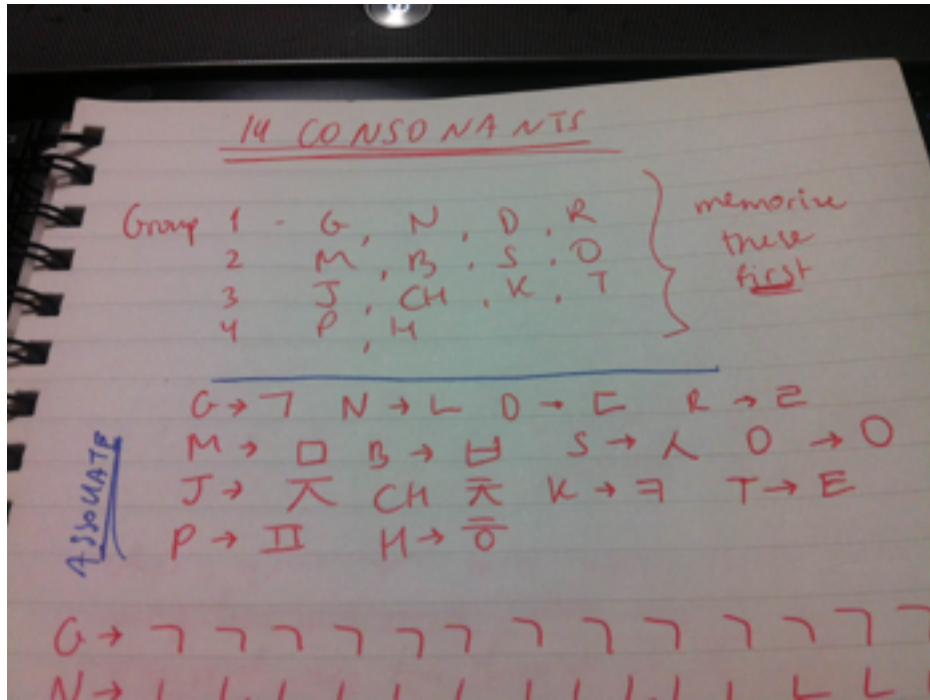 14 CONSONANTS
Group 1 - G, N, D, R
2 M, B, S, O
3 J, CH, K, T
4 P, H
memorize
these
first
G → ㄱ N → ㄴ D → ㄷ R → ㄹ
M → ㅁ B → ㅂ S → ㅅ O → ㅇ
J → ㅈ CH ㅊ K → ㅋ T → ㅌ
P → ㅍ H → ㅎ
ASSOCIATE
G → ㄱ ㄱ ㄱ ㄱ ㄱ ㄱ ㄱ ㄱ ㄱ ㄱ ㄱ ㄱ ㄱ
N → ㄴ ㄴ ㄴ ㄴ ㄴ ㄴ ㄴ ㄴ ㄴ ㄴ ㄴ ㄴ